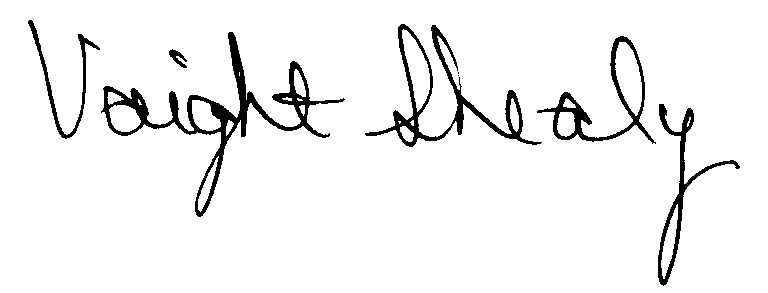 Voight Shealy